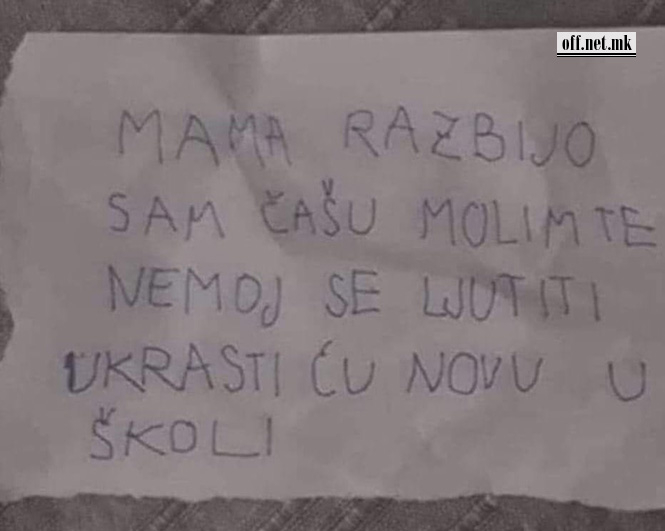 off.net.mk
MAMA RAZBIJO
SAM ČAŠU MOLIM TE
NEMOJ SE LJUTITI
UKRASTI ĆU NOVU U
ŠKOLI